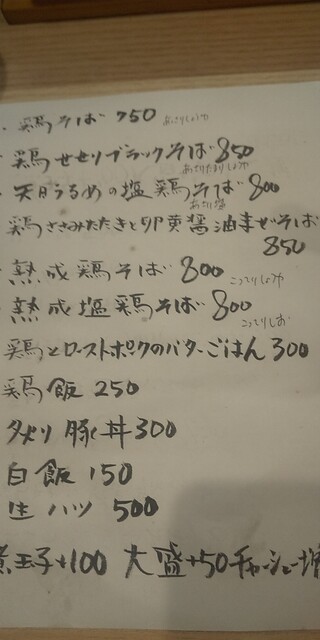 ・鶏そば 750 あっさりしょうゆ
鶏せせりブラックそば 850
あっさりたまりしょうゆ
・天日うるめの塩鶏そば 800
あっさり塩
鶏ささみたたきと卵黄醤油まぜそば
850
・熟成鶏そば 800
こってりしょうゆ
・熟成塩鶏そば 800
こってりしお
鶏とローストポークのバターごはん 300
鶏飯 250
炙り豚丼 300
白飯 150
生ハツ 500
煮玉子+100 大盛+50 チャーシュー増